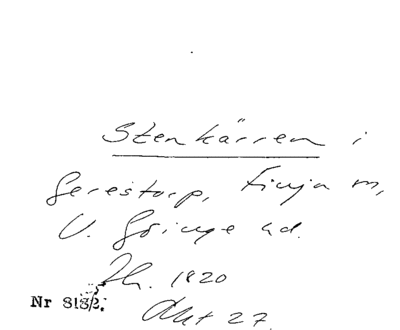 Stenkärren i
Gerestorp, Finja sn,
V. Göinge hd.
Fh. 1820
Nr 8132.
Akt 27.